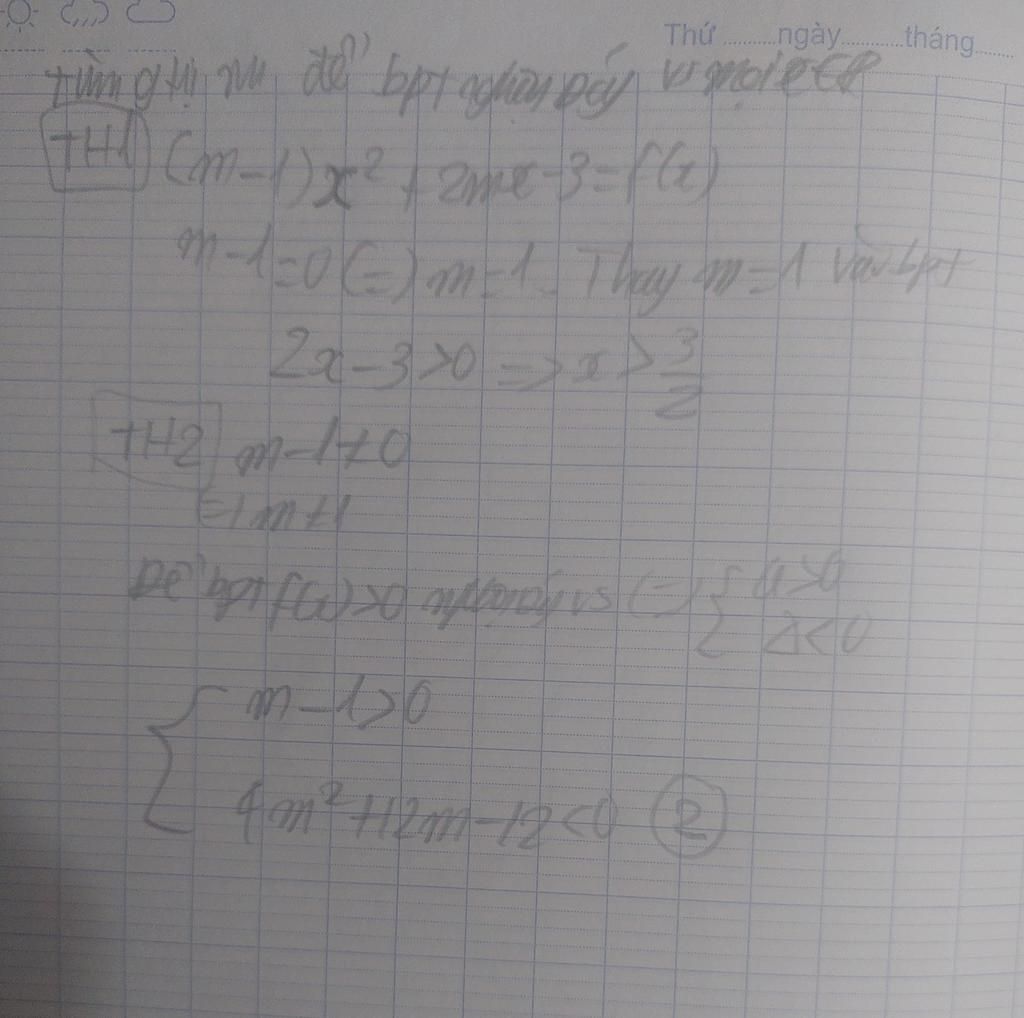 Thứ ngày tháng
Tìm giá trị m để bpt nghiệm đúng với mọi x∈R
TH1 (m-1)x² + 2mx-3=f(x)
m-1=0 (=) m=1. Thay m=1 vào bpt
2x-3>0 => x>3/2
TH2 m-1≠0
=) m≠1
Để bpt f(x)>0 (=) { a>0
Δ<0
{ m-1>0
4m²+12m-12<0 (2)